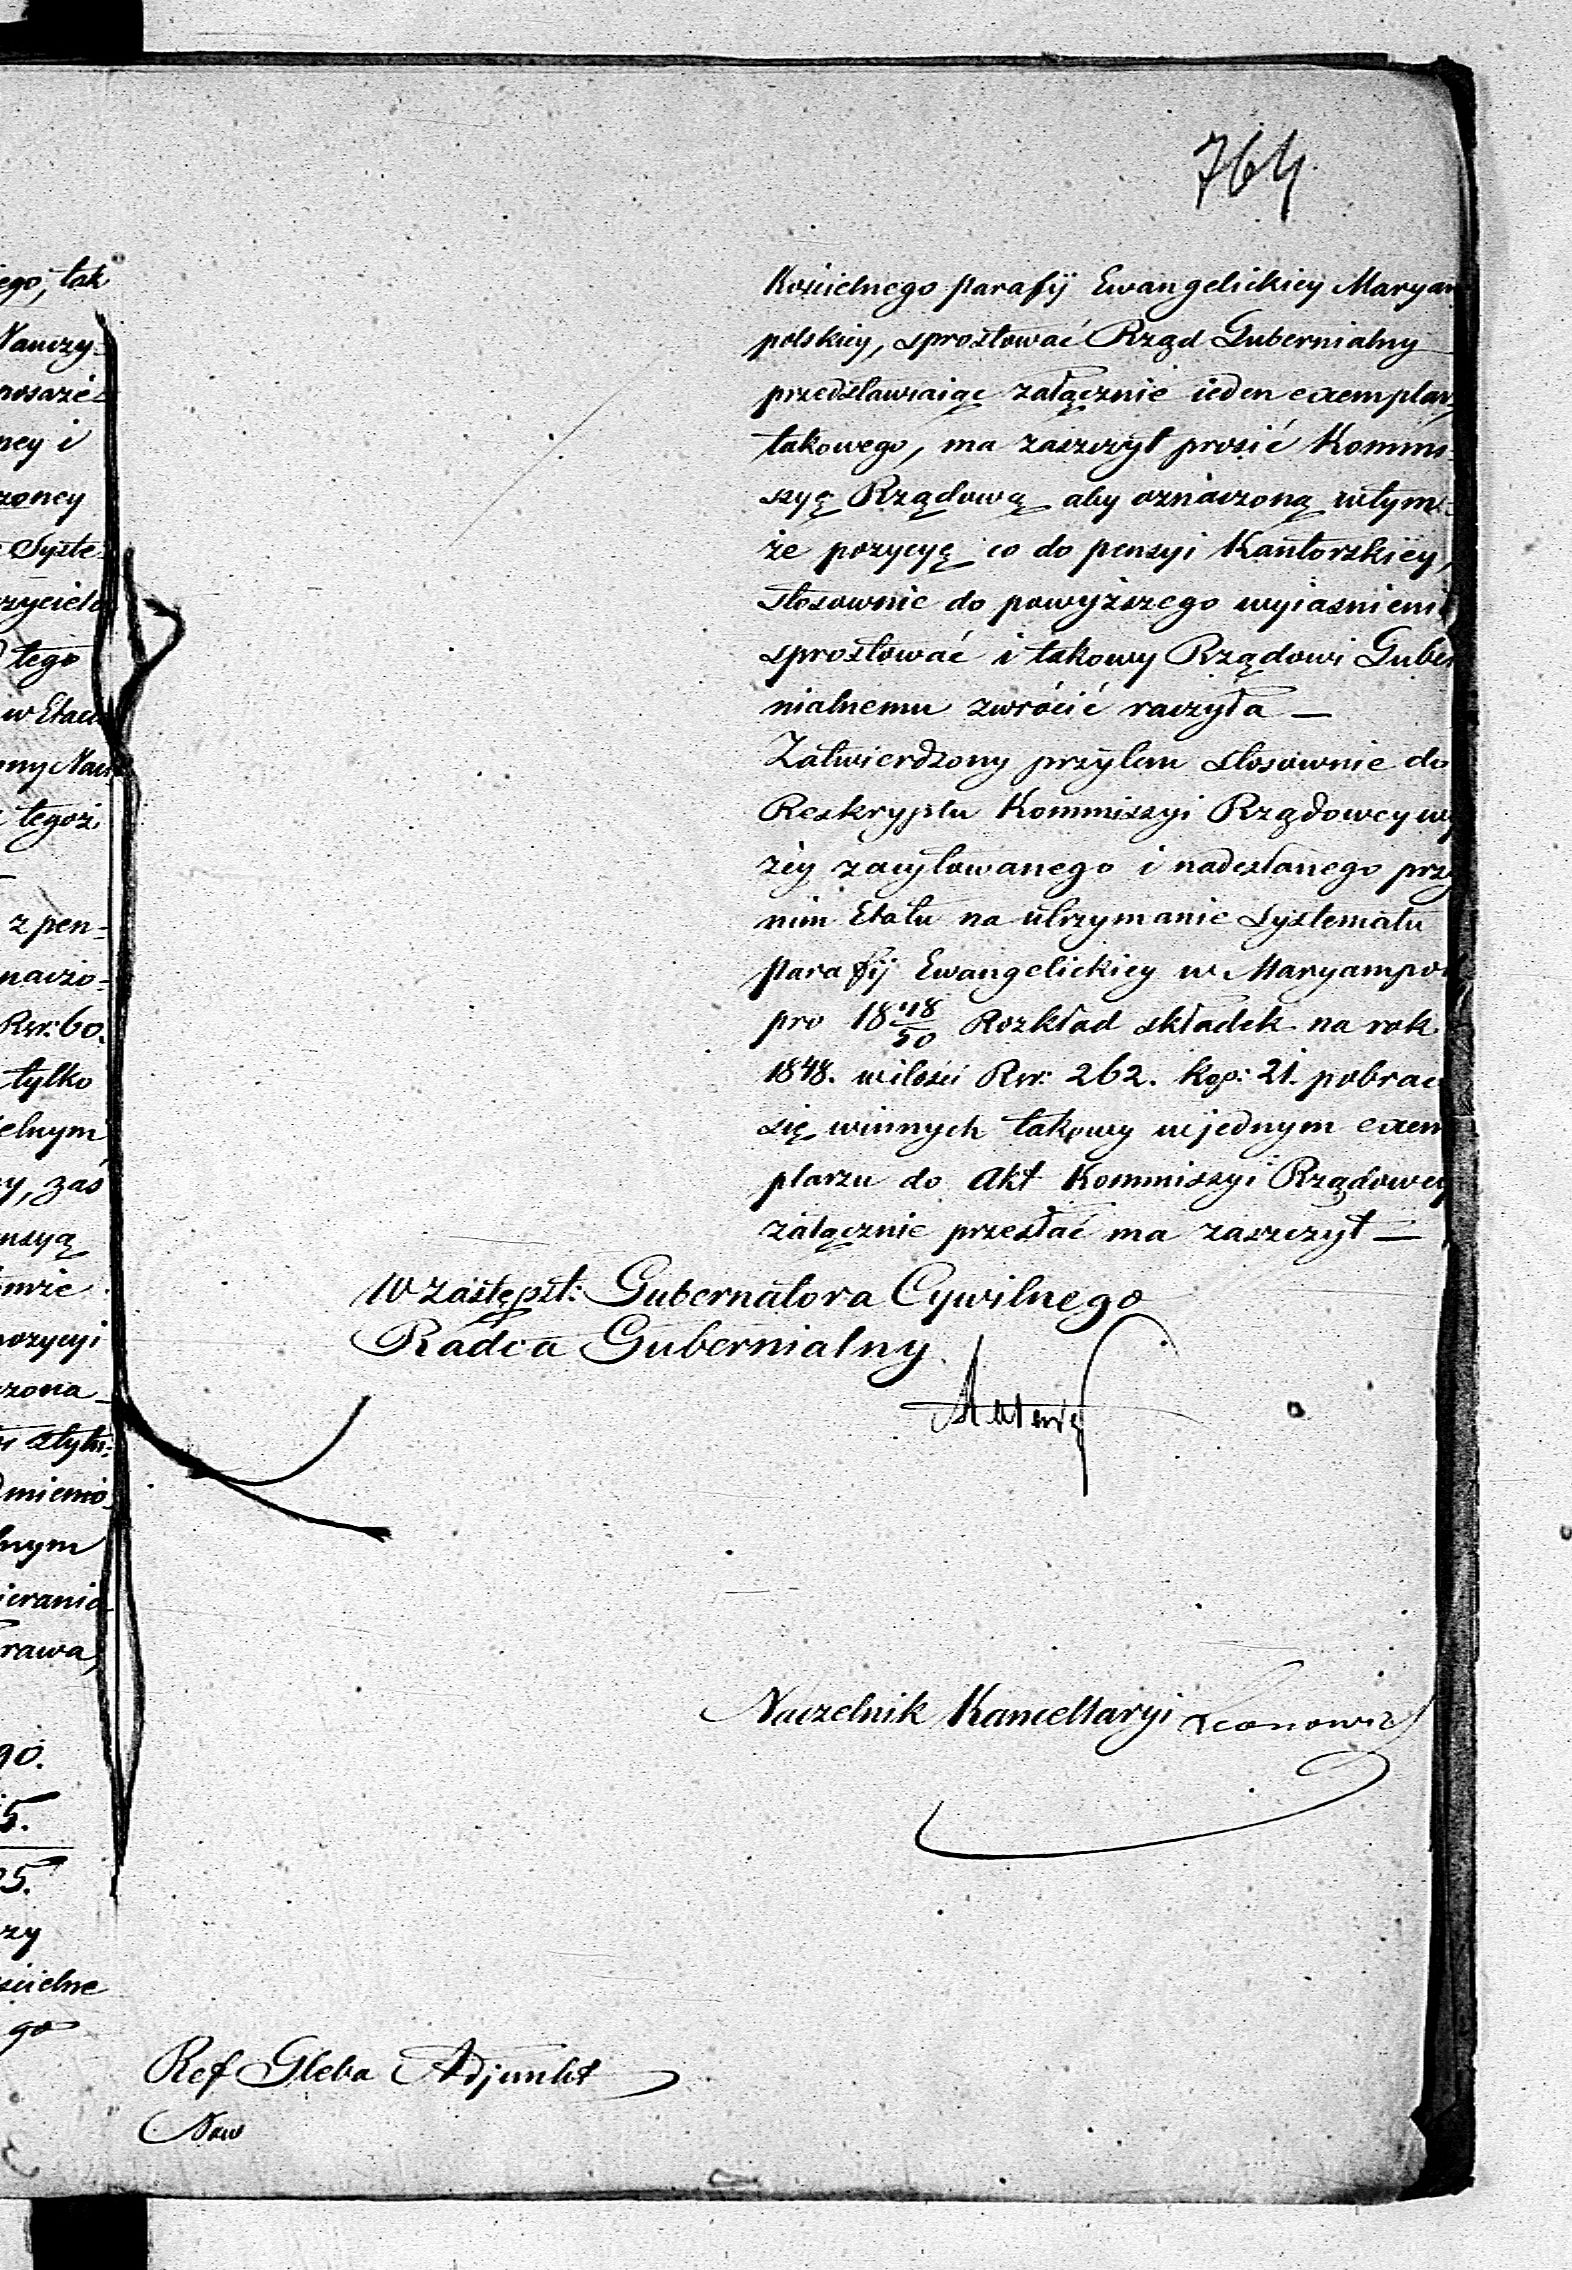 764.
ego, tak
Nauczy-
posaże-
ney i
zoney
Syste-
zyciela
tego
w Etac
ony Nau
tegoż
z pen=
naczo=
Rsr: 60.
tylko
elnym
y, zaś
nsyą
pozycyi
zona
mienio
lnym
ierania
rawa,
90.
5.
5.
zy
ścielne
go
Kościelnego parafij Ewangelickiey Maryam
polskiey, sprostować Rząd Gubernialny
przedstawiaiąc załącznie ieden exemplarz
takowego, ma zaszczyt prosić Kommis-
syę Rządową aby oznaczoną wtym-
że pozycyę co do pensyi Kantorskiey,
stosownie do powyższego wyiasnieni
sprostować i takowy Rządowi Guber
nialnemu zwrócić raczyła —
Zatwierdzony przytem stosownie do
Reskryptu Kommissyi Rządowey wy
żey zacytowanego i nadesłanego przy
nim Etatu na utrzymanie Systematu
parafij Ewangelickiey w Maryampol
pro 18 48/50 Rozkład składek na rok
1848. wilości Rsr: 262. kop: 21. pobrać
się winnych takowy wjednym exem
plarzu do Akt Kommissyi Rządowey
załącznie przesłać ma zaszczyt —
W zastępst: Gubernatora Cywilnego
Radca Gubernialny
Naczelnik Kancellaryi Leonowicz
Ref Gleba Adjunkt
Naw